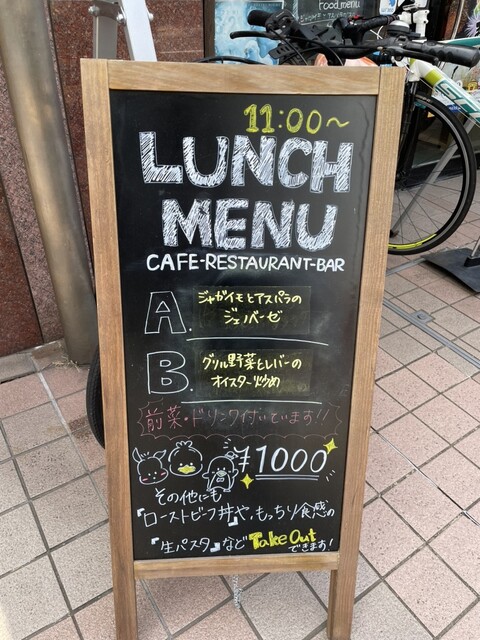 Food menu
11:00～
LUNCH
MENU
CAFE-RESTAURANT-BAR
A.
ジャガイモとアスパラの
ジェノベーゼ
B.
グリル野菜とレバーの
オイスター炒め
前菜・ドリンク付いています!!
¥1000
その他にも
「ローストビーフ丼」や、もっちり食感の
「生パスタ」など Take Out
できます!